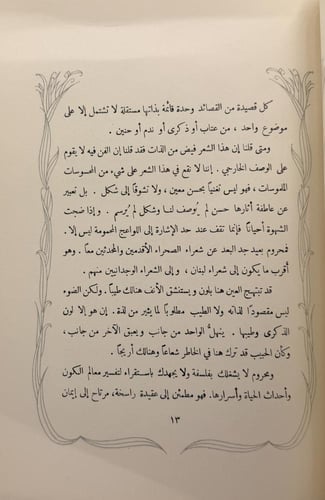 كل قصيدة من القصائد وحدة قائمة بذاتها مستقلة لا تشتمل إلا على
موضوع واحد ، من عتاب أو ذكرى أو ندم أو حنين .
ومتى قلنا إن هذا الشعر فيض من الذات فقد قلنا إن الفن فيه لا يقوم
على الوصف الخارجي . إننا لا نقع في هذا الشعر على شيء من المحسوسات
الملموسات ، فهو ليس تغنياً بحسن معين ، ولا تشوقاً إلى شكل . بل تعبير
عن عاطفة أثارها حسن لم يُوصف لنا وشكل لم يُرسم . وإذا ضجت
الشهوة أحياناً فإنما تقف عند حد الإشارة إلى اللواعج المحمومة ليس إلا .
فمحروم بعيد جد البعد عن شعراء الصحراء الأقدمين والمحدثين معاً . وهو
أقرب ما يكون إلى شعراء لبنان ، إلى الشعراء الوجدانيين منهم .
قد تبتهج العين هنا بلون ويستنشق الأنف هنالك طيباً . ولكن الضوء
ليس مقصوداً لذاته ولا الطيب مطلوباً لما يثير من لذة . إن هو إلا لون
الذكرى وطيبها . ينهلّ الواحد من جانب ويعبق الآخر من جانب ،
وكأن الحبيب قد ترك هنا في الخاطر شعاعاً وهنالك أريجاً .
ومحروم لا يشغلك بفلسفة ولا يجهدك باستقراء لتفسير معالم الكون
وأحداث الحياة وأسرارها . فهو مطمئن إلى عقيدة راسخة ، مرتاح إلى إيمان
١٣